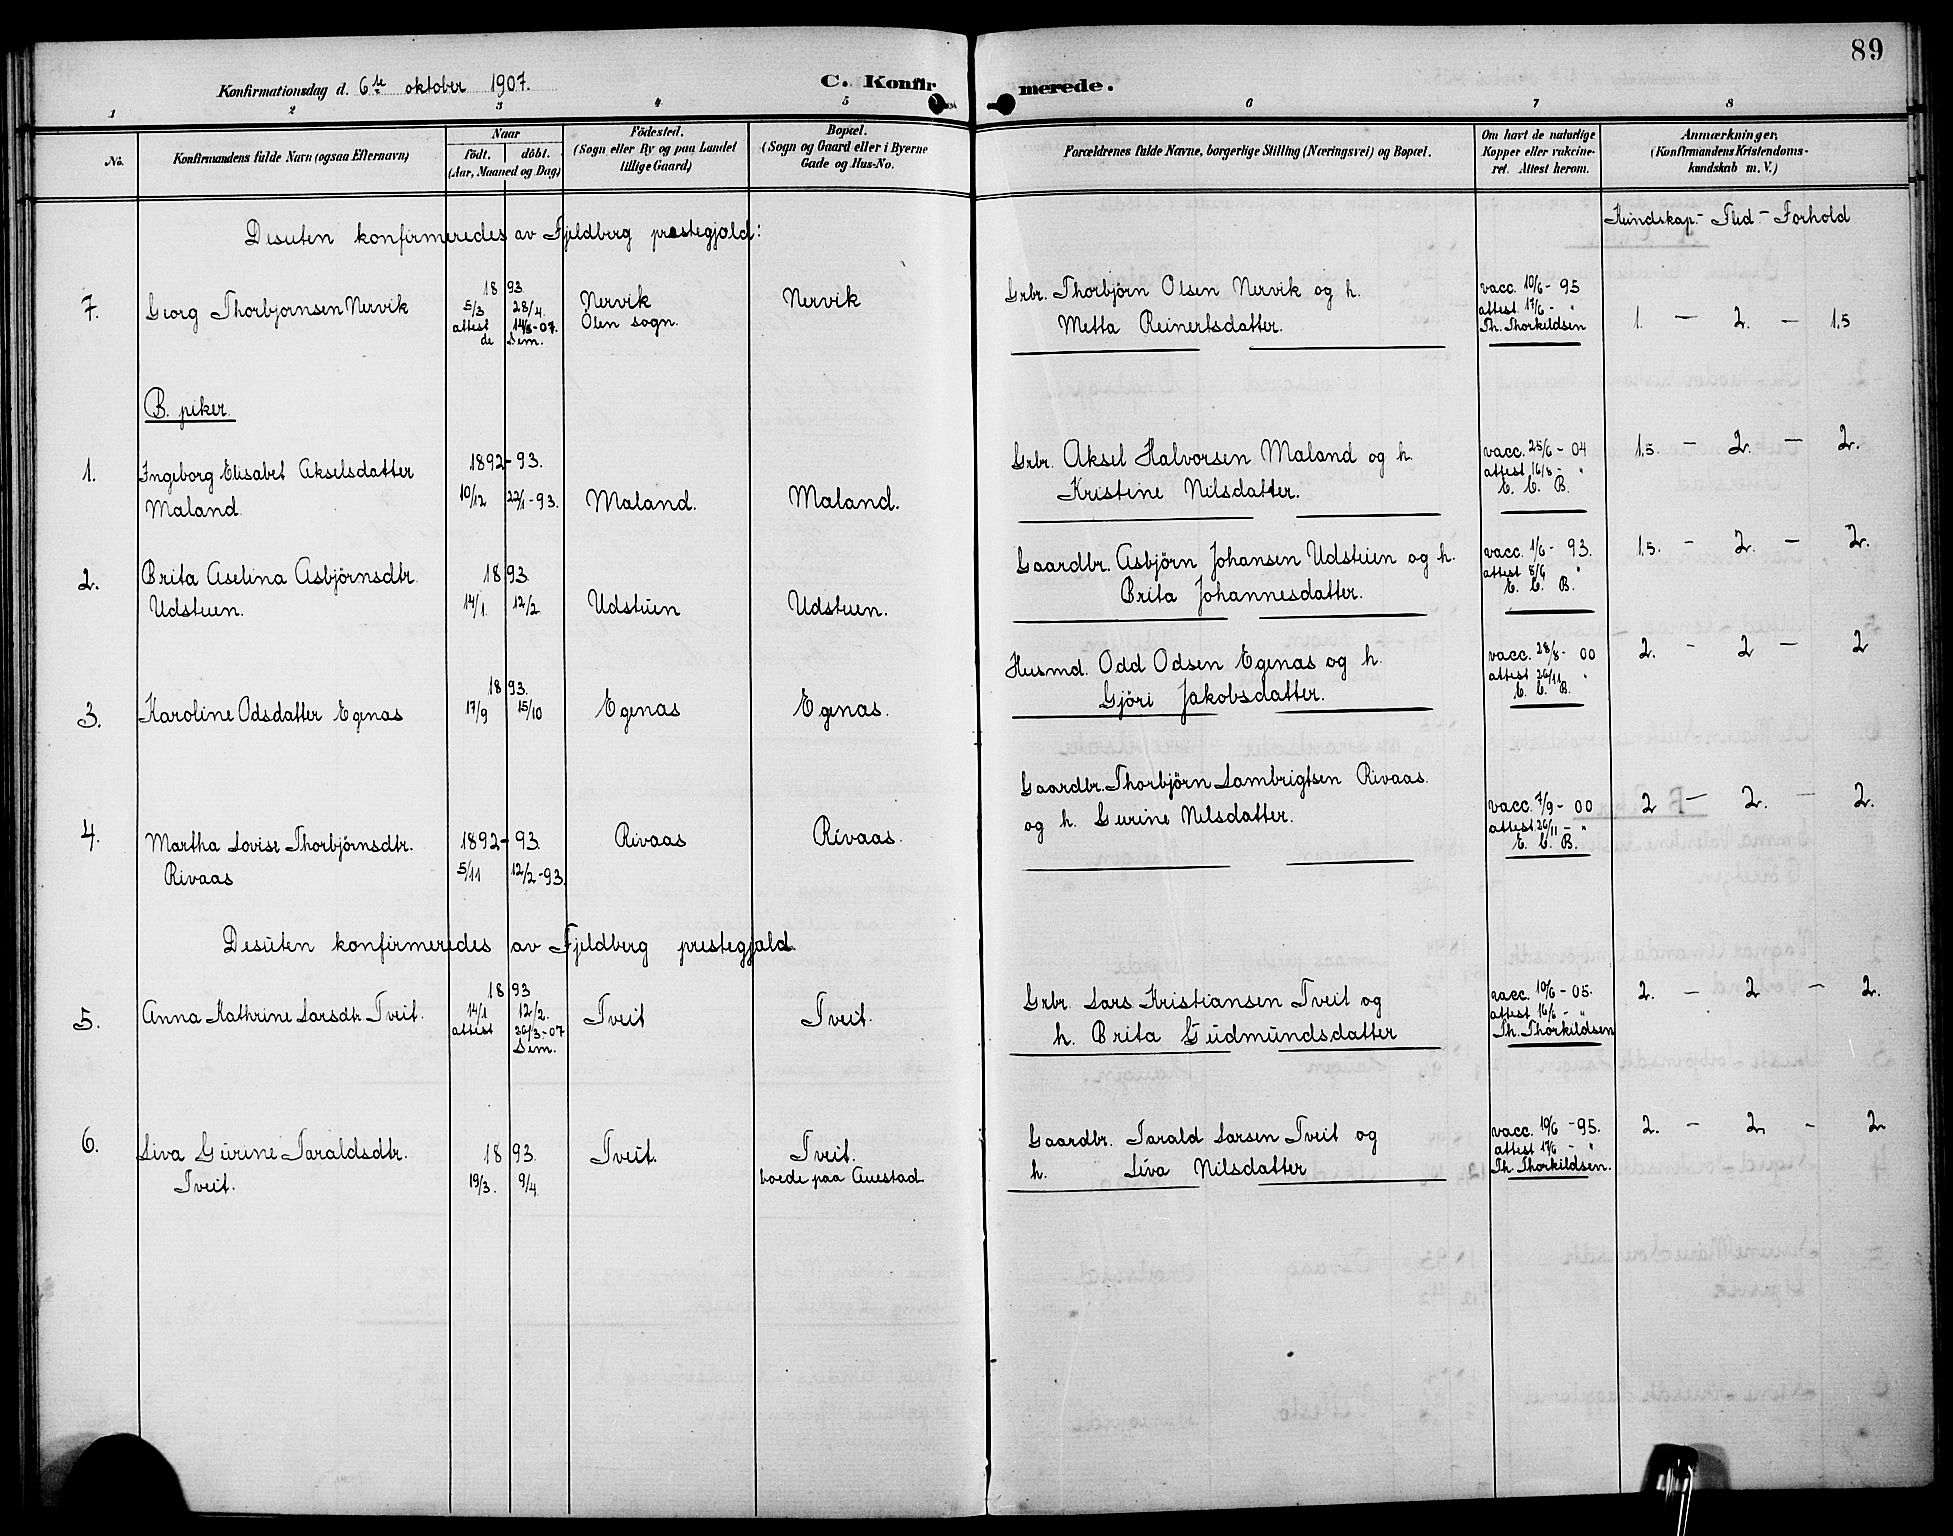 89
Konfirmationsdag d. 6te oktober 1907.
C. Konfirmerede.
1 2 3 4 5 6 7 8
No.
Konfirmandens fulde Navn (ogsaa Efternavn)
Naar
födt. döbt.
(Aar, Maaned og Dag)
Födested.
(Sogn eller By og paa Landet
tillige Gaard)
Bopæl.
(Sogn og Gaard eller i Byerne
Gade og Hus-No.
Forældrenes fulde Navne, borgerlige Stilling (Næringsvei) og Bopæl.
Om havt de naturlige
Kopper eller vakcine-
ret. Attest herom.
Anmærkninger,
(Konfirmandens Kristendoms-
kundskab m. V.)
Kundskap - Flid - Forhold
Desuten konfirmeredes av Fjeldberg prestegjæld:
7. Georg Thorbjørnsen Nervik
1893
5/3 28/4.
attest 14/8-07.
de Sem.
Nervik
Ölen sogn.
Nervik
Grbr. Thorbjörn Olsen Nervik og h.
Metta Reinertsdatter.
vacc. 10/6 - 95
attest 17/6 - "
Th. Thorkildsen
1. - 2. - 1,5
B. piker.
1. Ingeborg Elisabet Akselsdatter
Maland.
1892-93.
10/12 22/1-93.
Maland.
Maland.
Grbr. Aksel Halvorsen Maland og h.
Kristine Nilsdatter.
vacc. 25/6 - 04
attest 16/8 - "
E. C. B.
1,5. - 2. - 2.
2. Brita Aselina Asbjörnsdtr.
Udstuen.
1893.
14/1. 12/2
Udstuen
Udstuen.
Gaardbr. Asbjörn Johansen Udstuen og h.
Brita Johannesdatter.
vacc. 1/6 - 93.
attest 8/6 "
E. C. B.
1,5. - 2. - 2.
3. Karoline Odsdatter Egenas
1893.
17/9 15/10
Egenas
Egenas.
Husmd. Odd Odsen Egenas og h.
Gjöri Jakobsdatter.
vacc. 28/8 - 00
attest 26/11 "
E. C. B.
2. - 2 - 2
4. Martha Lovise Thorbjörnsdtr.
Rivaas
1892-93.
5/11 12/2-93.
Rivaas
Rivaas.
Gaardbr. Thorbjörn Lambrigtsen Rivaas.
og h. Gurine Nilsdatter.
vacc. 7/9 - 00
attest 26/11 - "
E. C. B.
2 - 2. - 2.
Desuten konfirmeredes av Fjeldberg prestegjæld.
5. Anna Kathrine Larsdtr Tveit.
1893
14/1 12/2.
attest 26/3-07
Sem.
Tveit
Tveit.
Grbr. Lars Kristiansen Tveit og
h. Brita Gudmundsdatter
vacc. 10/6 - 05.
attest 16/6 - "
Th. Thorkildsen
2. - 2 - 2.
6. Siva Gurine Taraldsdtr.
Tveit.
1893.
19/3. 9/4.
Tveit.
Tveit.
boede paa Auestad.
Gaardbr. Tarald Larsen Tveit og
h. Siva Nilsdatter
vacc. 10/6 - 95.
attest 17/6 - "
Th. Thorkildsen.
2. - 2. - 2.